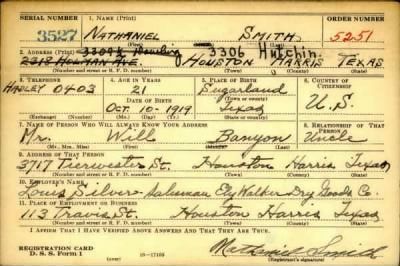 SERIAL NUMBER 1. NAME (Print) ORDER NUMBER
3527 NATHANIEL SMITH 5251
(First) (Middle) (Last)
2. ADDRESS (Print) 3309½ Dowling 3306 Hutchin.
2318 HOLMAN AVE. HOUSTON HARRIS TEXAS
(Number and street or R. F. D. number) (Town) (County) (State)
3. TELEPHONE 4. AGE IN YEARS 5. PLACE OF BIRTH 6. COUNTRY OF CITIZENSHIP
HADLEY 0403 21 Sugarland
DATE OF BIRTH (Town or county) U.S.
OCT. 10-1919 Texas
(Exchange) (Number) (Mo.) (Day) (Yr.) (State or country)
7. NAME OF PERSON WHO WILL ALWAYS KNOW YOUR ADDRESS 8. RELATIONSHIP OF THAT PERSON
Mr. Will Banyon Uncle
(Mr., Mrs., Miss) (First) (Middle) (Last)
9. ADDRESS OF THAT PERSON
3717 St. Houston Harris Texas
(Number and street or R. F. D. number) (Town) (County) (State)
10. EMPLOYER'S NAME
Louis Silvers Salesman Ely Walker Dry Goods Co
11. PLACE OF EMPLOYMENT OR BUSINESS
113 Travis St. Houston Harris Texas
(Number and street or R. F. D. number) (Town) (County) (State)
I AFFIRM THAT I HAVE VERIFIED ABOVE ANSWERS AND THAT THEY ARE TRUE.
REGISTRATION CARD Nathaniel Smith
D. S. S. Form 1 (over) 16-17105 (Registrant's signature)